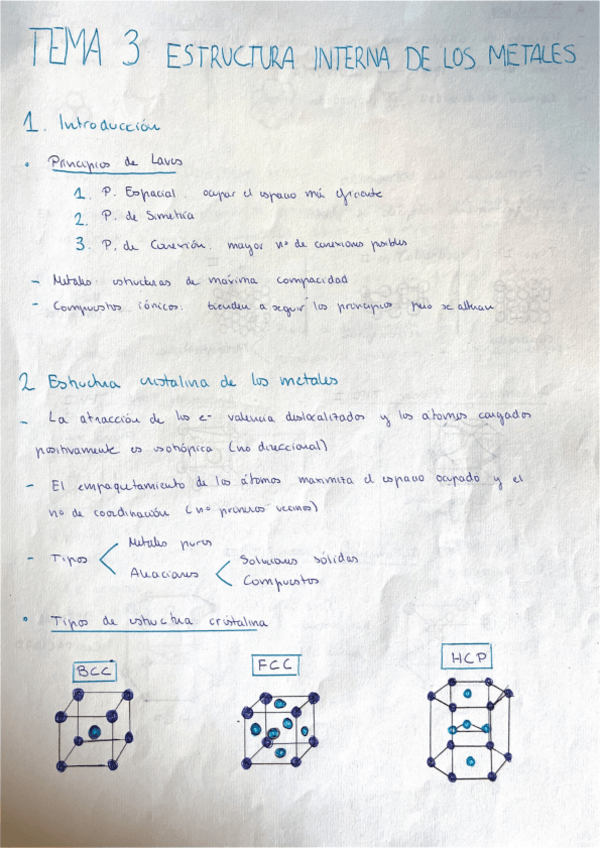 TEMA 3 ESTRUCTURA INTERNA DE LOS METALES
1. Introducción
• Principios de Laves
1. P. Espacial. ocupar el espacio más eficiente
2. P. de Simetría
3. P. de Conexión. mayor nº de conexiones posibles
- Metales: estructuras de máxima compacidad
- Compuestos iónicos: tienden a seguir los principios pero se alteran
2 Estructura cristalina de los metales
- La atracción de los e- valencia deslocalizados y los átomos cargados
positivamente es isotrópica (no direccional)
- El empaquetamiento de los átomos maximiza el espacio ocupado y el
nº de coordinación (nº primeros vecinos)
- Tipos
Metales puros
Aleaciones
Soluciones sólidas
Compuestos
• Tipos de estructura cristalina
BCC
FCC
HCP